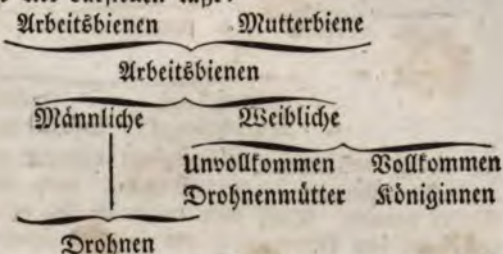 Arbeitsbienen Mutterbiene
Arbeitsbienen
Männliche Weibliche
Unvollkommen Vollkommen
Drohnenmütter Königinnen
Drohnen